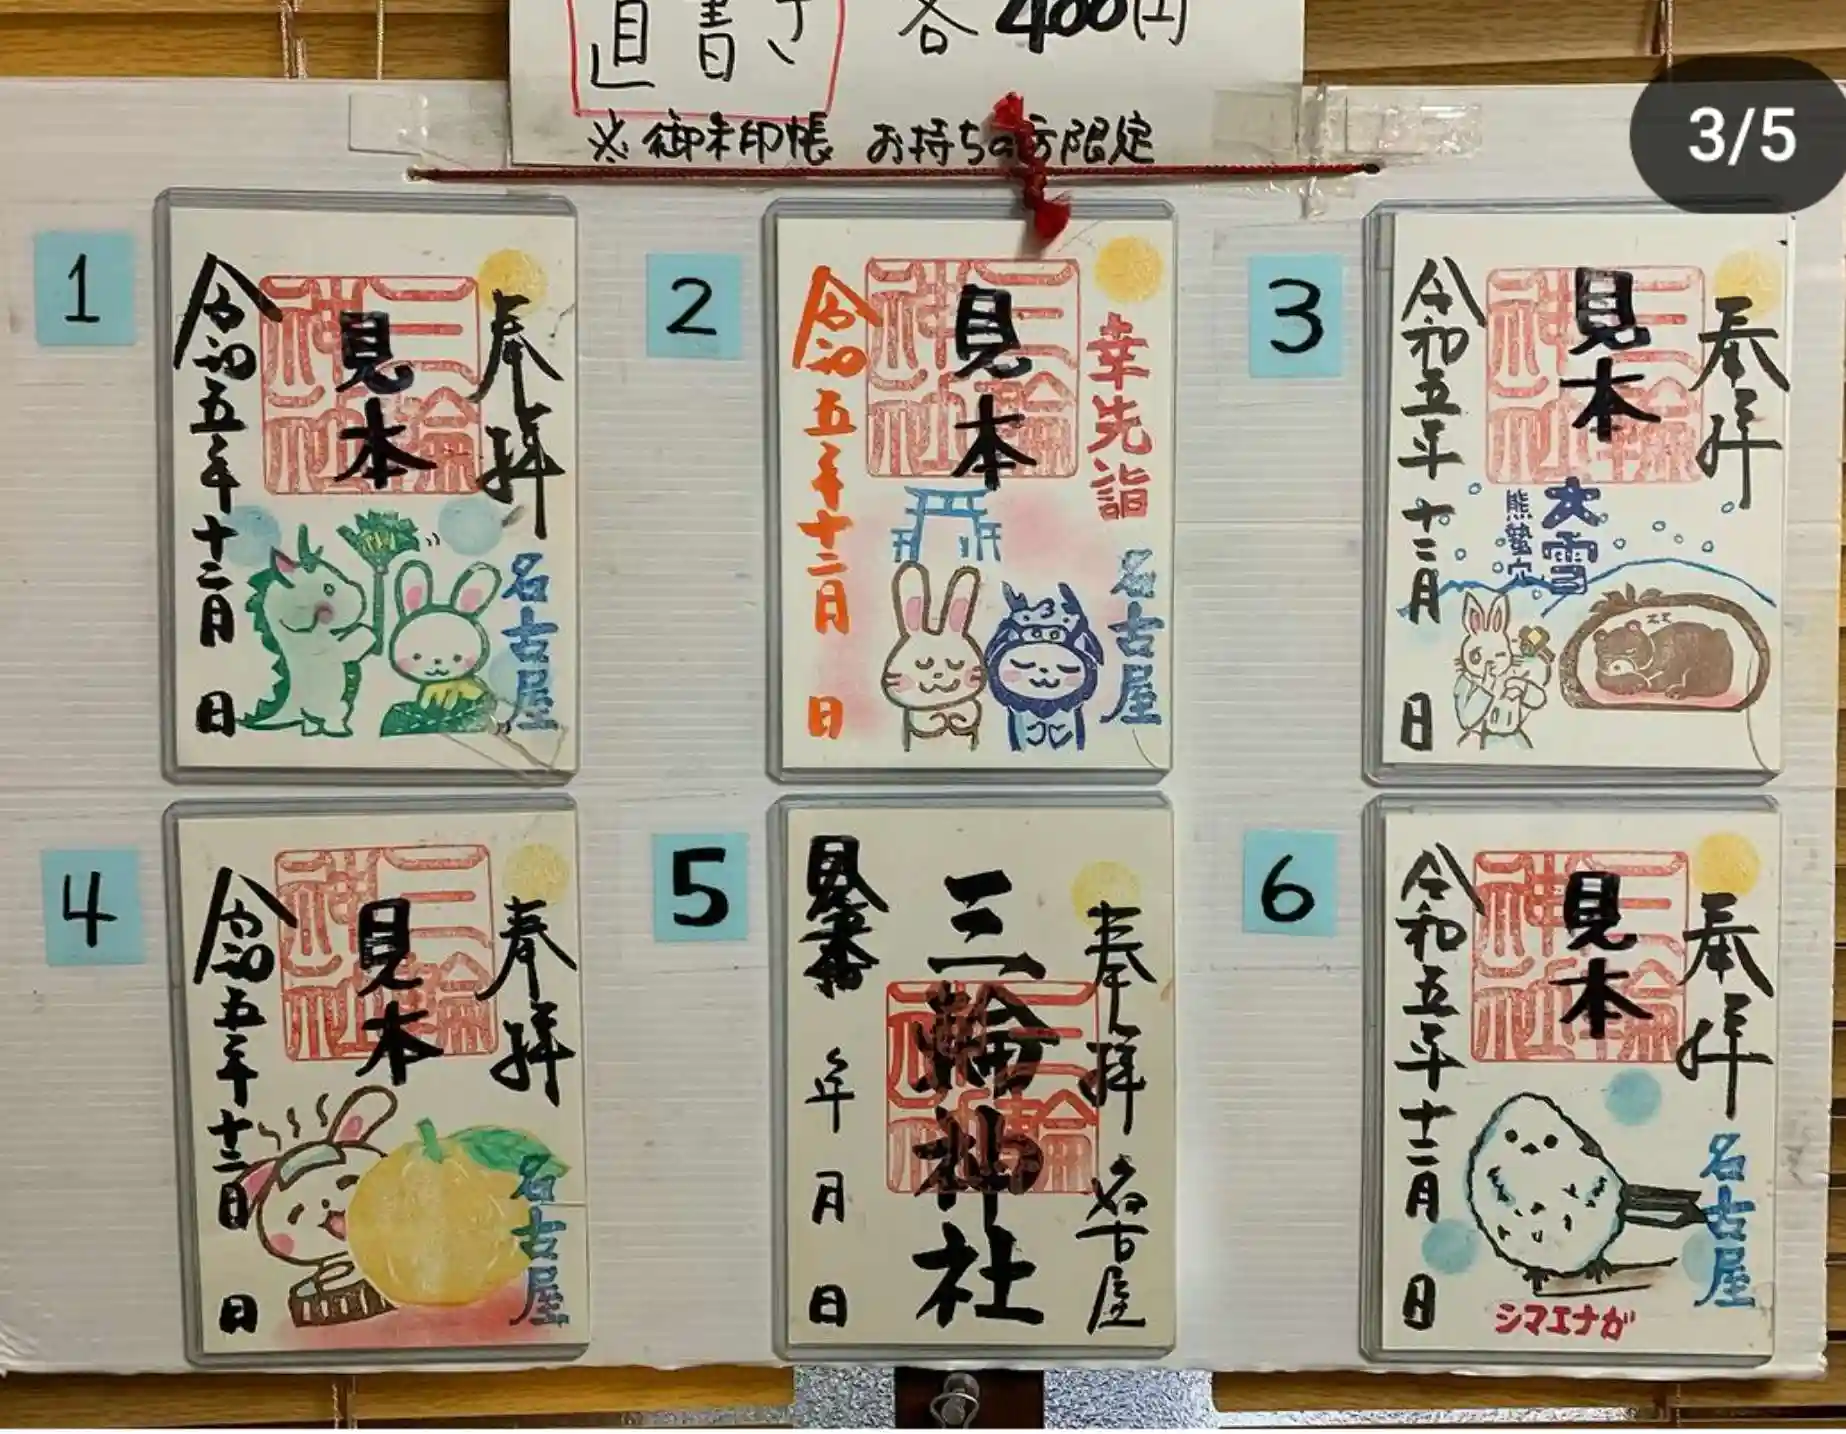 直書き 各400円
※御朱印帳 お持ちの方限定
3/5
1
奉拝
三輪神社
見本
令和五年十二月 日
名古屋
2
幸先詣
三輪神社
見本
令和五年十二月 日
名古屋
3
奉拝
三輪神社
見本
大雪
熊蟄穴
令和五年十二月 日
4
奉拝
三輪神社
見本
令和五年十二月 日
名古屋
5
奉拝 名古屋
三輪神社
三輪神社
見本
年 月 日
6
奉拝
三輪神社
見本
令和五年十二月 日
名古屋
シマエナガ